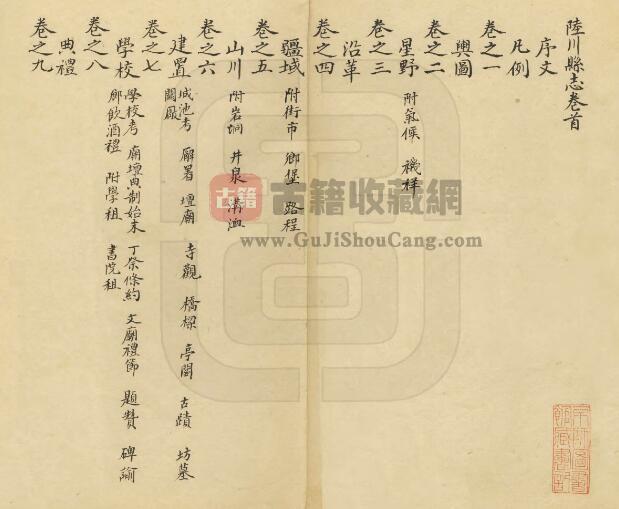 陸川縣志卷首
序文
凡例
卷之一
輿圖
卷之二
星野 附氣候 禨祥
卷之三
沿革
卷之四
疆域 附街市 鄉堡 路程
卷之五
山川 附岩峒 井泉 溝洫
卷之六
建置 城池考 廨署 壇廟 寺觀 橋樑 亭閣 古蹟 坊墓
關厰
卷之七
學校 學校考 廟壇典制始末 丁祭條約 文廟禮節 題贊 碑諭
鄉飲酒禮 附學租 書院租
卷之八
典禮
卷之九
古籍
古籍收藏網
www.GuJiShouCang.com